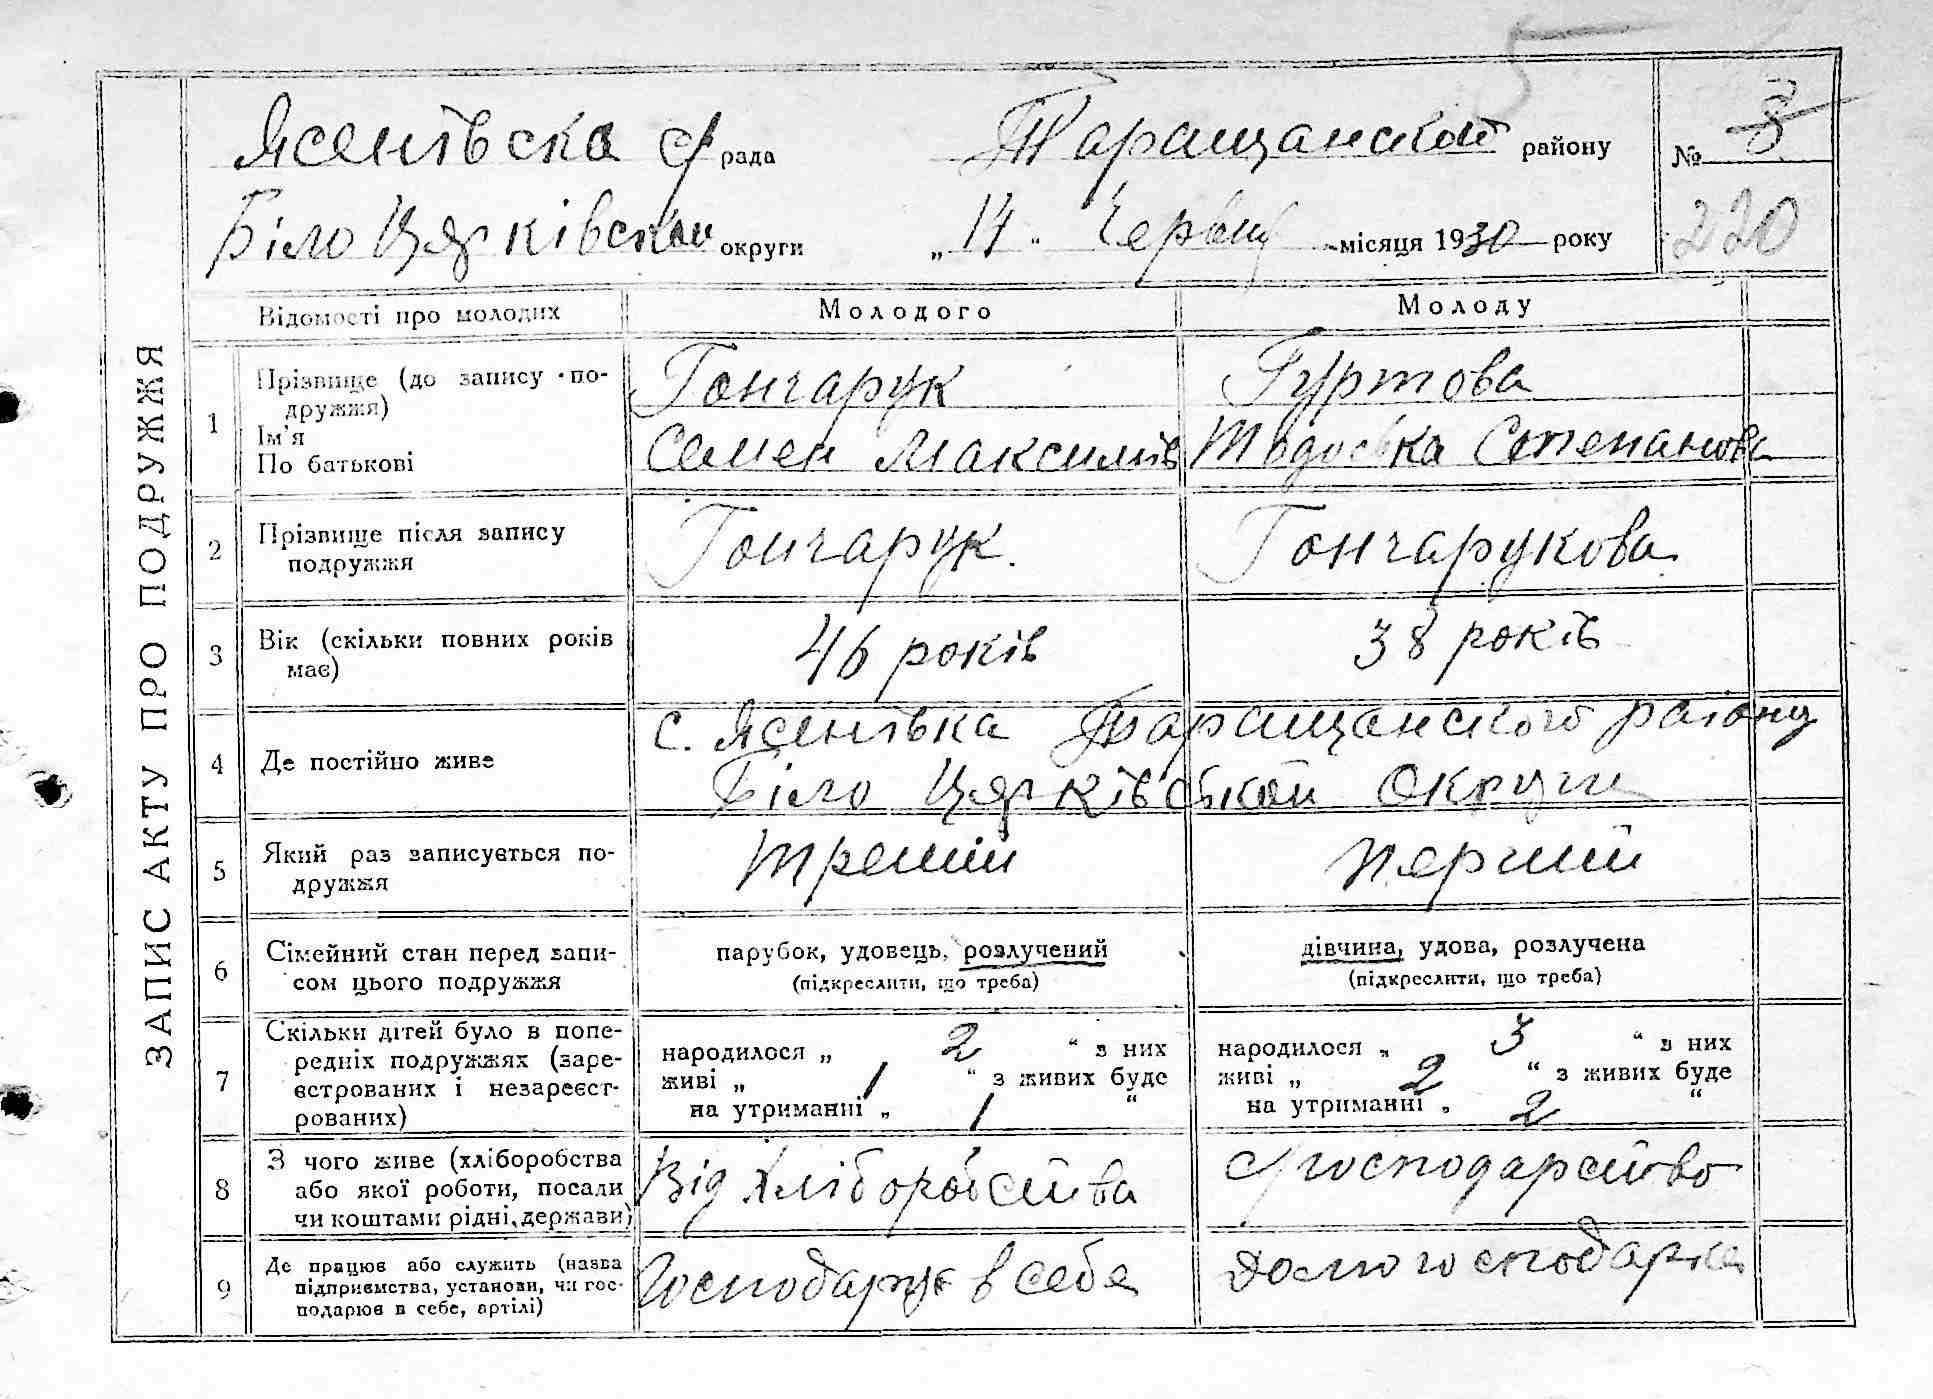 5
ЗАПИС АКТУ ПРО ПОДРУЖЖЯ
Ясенівска с/рада Таращанской району № 8
Біло Цярківской округи „14" Червня місяця 1930 року 220
Відомості про молодих Молодого Молоду
1 Прізвище (до запису подружжя) Гончарук Гуртова
Ім'я
По батькові Семен Максимів Тодоська Степанова
2 Прізвище після запису подружжя Гончарук. Гончарукова
3 Вік (скільки повних років має) 46 років 38 років
4 Де постійно живе с. Ясенівка Таращанского району
Біло Цярківской Округи
5 Який раз записується подружжя третій перший
6 Сімейний стан перед записом цього подружжя парубок, удовець, розлучений дівчина, удова, розлучена
(підкреслити, що треба) (підкреслити, що треба)
7 Скільки дітей було в попередніх подружжях (зареєстрованих і незареєстрованих) народилося „ 2 " з них народилося „ 3 " з них
живі „ 1 " з живих буде живі „ 2 " з живих буде
на утриманні „ 1 " на утриманні „ 2 "
8 З чого живе (хліборобства або якої роботи, посади чи коштами рідні, держави) Від хліборобства с/господарство
9 Де працює або служить (назва підприємства, установи, чи господарює в себе, артілі) Господарує в себе Домогосподарка